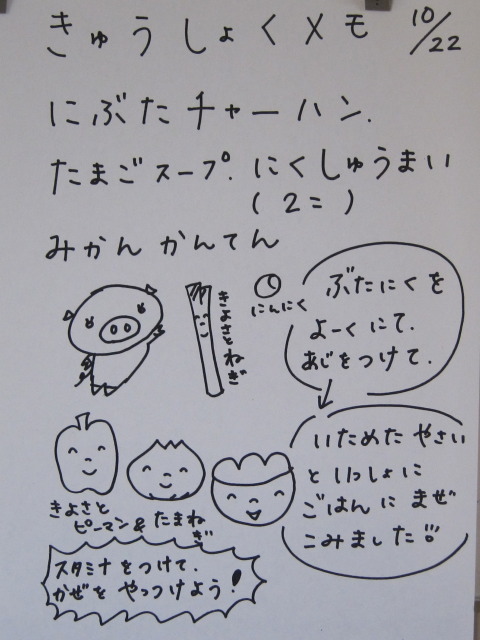 きゅうしょくメモ 10/22
にぶたチャーハン.
たまごスープ. にくしゅうまい
(2こ)
みかんかんてん
きよさとねぎ
にんにく
ぶたにくを
よーくにて.
あじをつけて.
いためたやさい
といっしょに
ごはんにまぜ
こみました!!
きよさと
ピーマン&たまねぎ
スタミナをつけて.
かぜをやっつけよう!